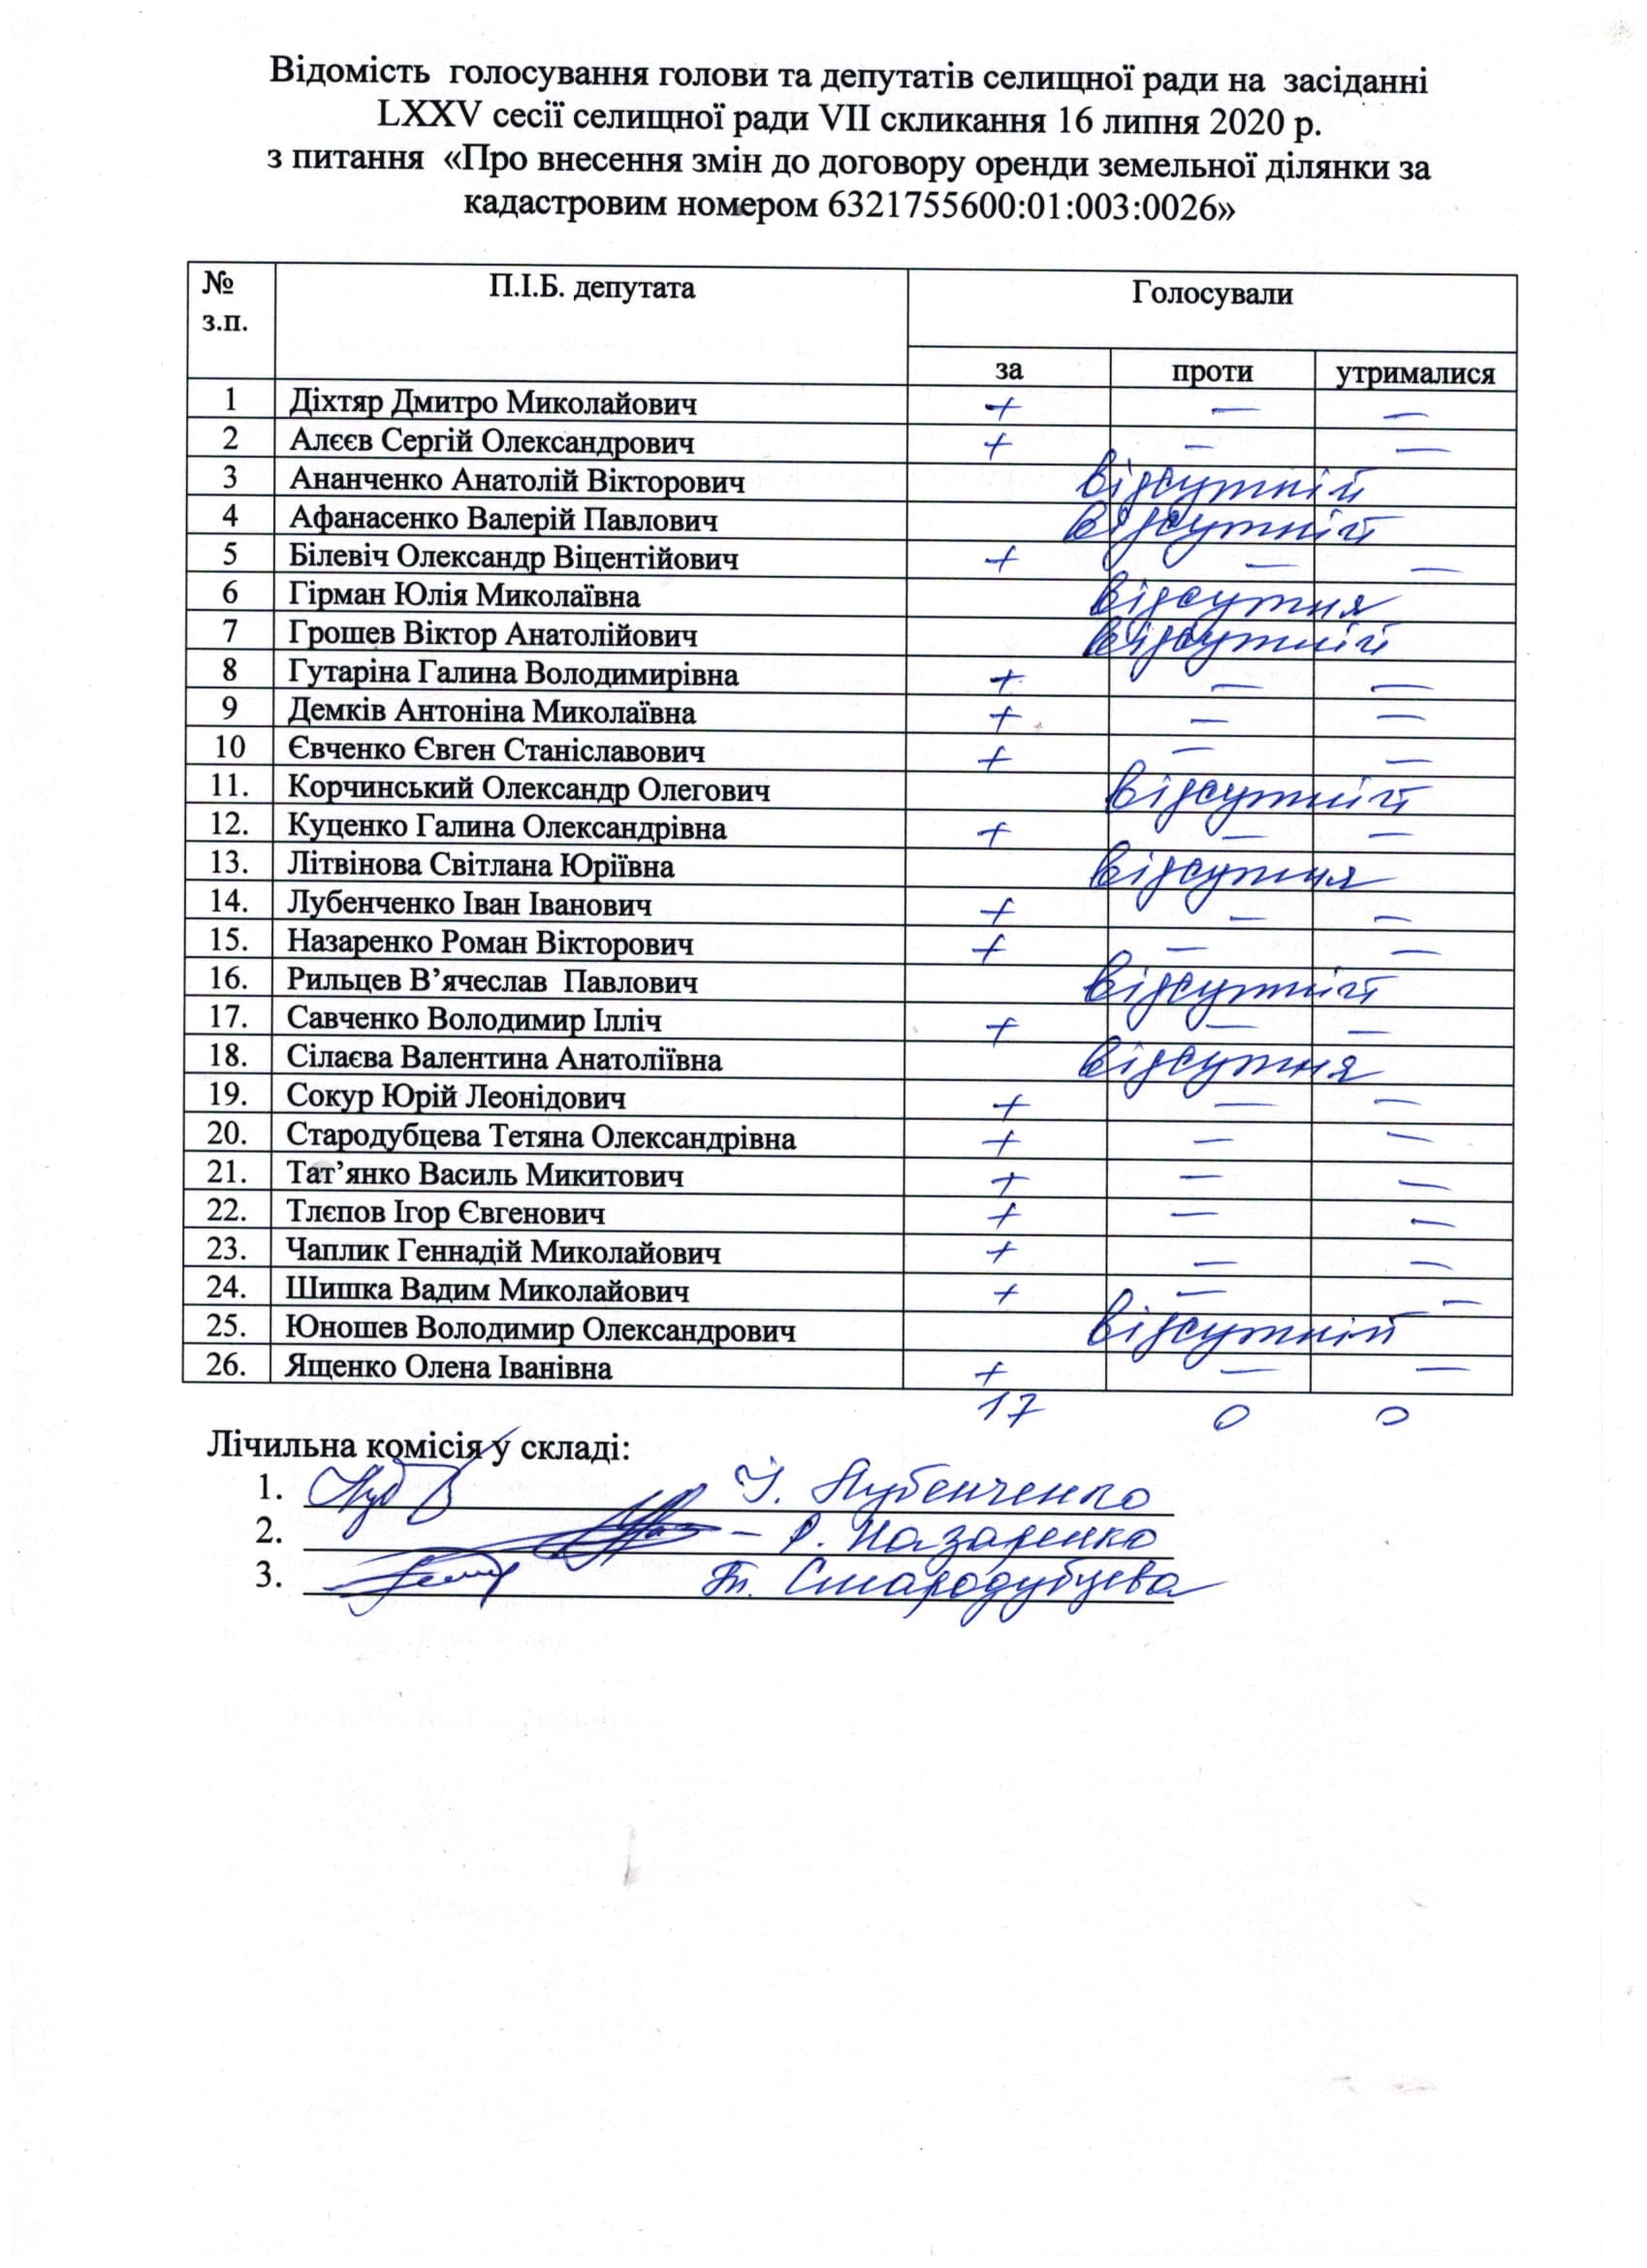 Відомість голосування голови та депутатів селищної ради на засіданні
LXXV сесії селищної ради VII скликання 16 липня 2020 р.
з питання «Про внесення змін до договору оренди земельної ділянки за
кадастровим номером 6321755600:01:003:0026»
№ з.п. П.І.Б. депутата Голосували
за проти утрималися
1 Діхтяр Дмитро Миколайович + — —
2 Алєєв Сергій Олександрович + — —
3 Ананченко Анатолій Вікторович відсутній
4 Афанасенко Валерій Павлович відсутній
5 Білевіч Олександр Віцентійович + — —
6 Гірман Юлія Миколаївна відсутня
7 Грошев Віктор Анатолійович відсутній
8 Гутаріна Галина Володимирівна + — —
9 Демків Антоніна Миколаївна + — —
10 Євченко Євген Станіславович + — —
11. Корчинський Олександр Олегович відсутній
12. Куценко Галина Олександрівна + — —
13. Літвінова Світлана Юріївна відсутня
14. Лубенченко Іван Іванович + — —
15. Назаренко Роман Вікторович + — —
16. Рильцев В’ячеслав Павлович відсутній
17. Савченко Володимир Ілліч + — —
18. Сілаєва Валентина Анатоліївна відсутня
19. Сокур Юрій Леонідович + — —
20. Стародубцева Тетяна Олександрівна + — —
21. Тат’янко Василь Микитович + — —
22. Тлєпов Ігор Євгенович + — —
23. Чаплик Геннадій Миколайович + — —
24. Шишка Вадим Миколайович + — —
25. Юношев Володимир Олександрович відсутній
26. Ященко Олена Іванівна + — —
17 0 0
Лічильна комісія у складі:
1. І. Лубенченко
2. – Р. Назаренко
3. Т. Стародубцева